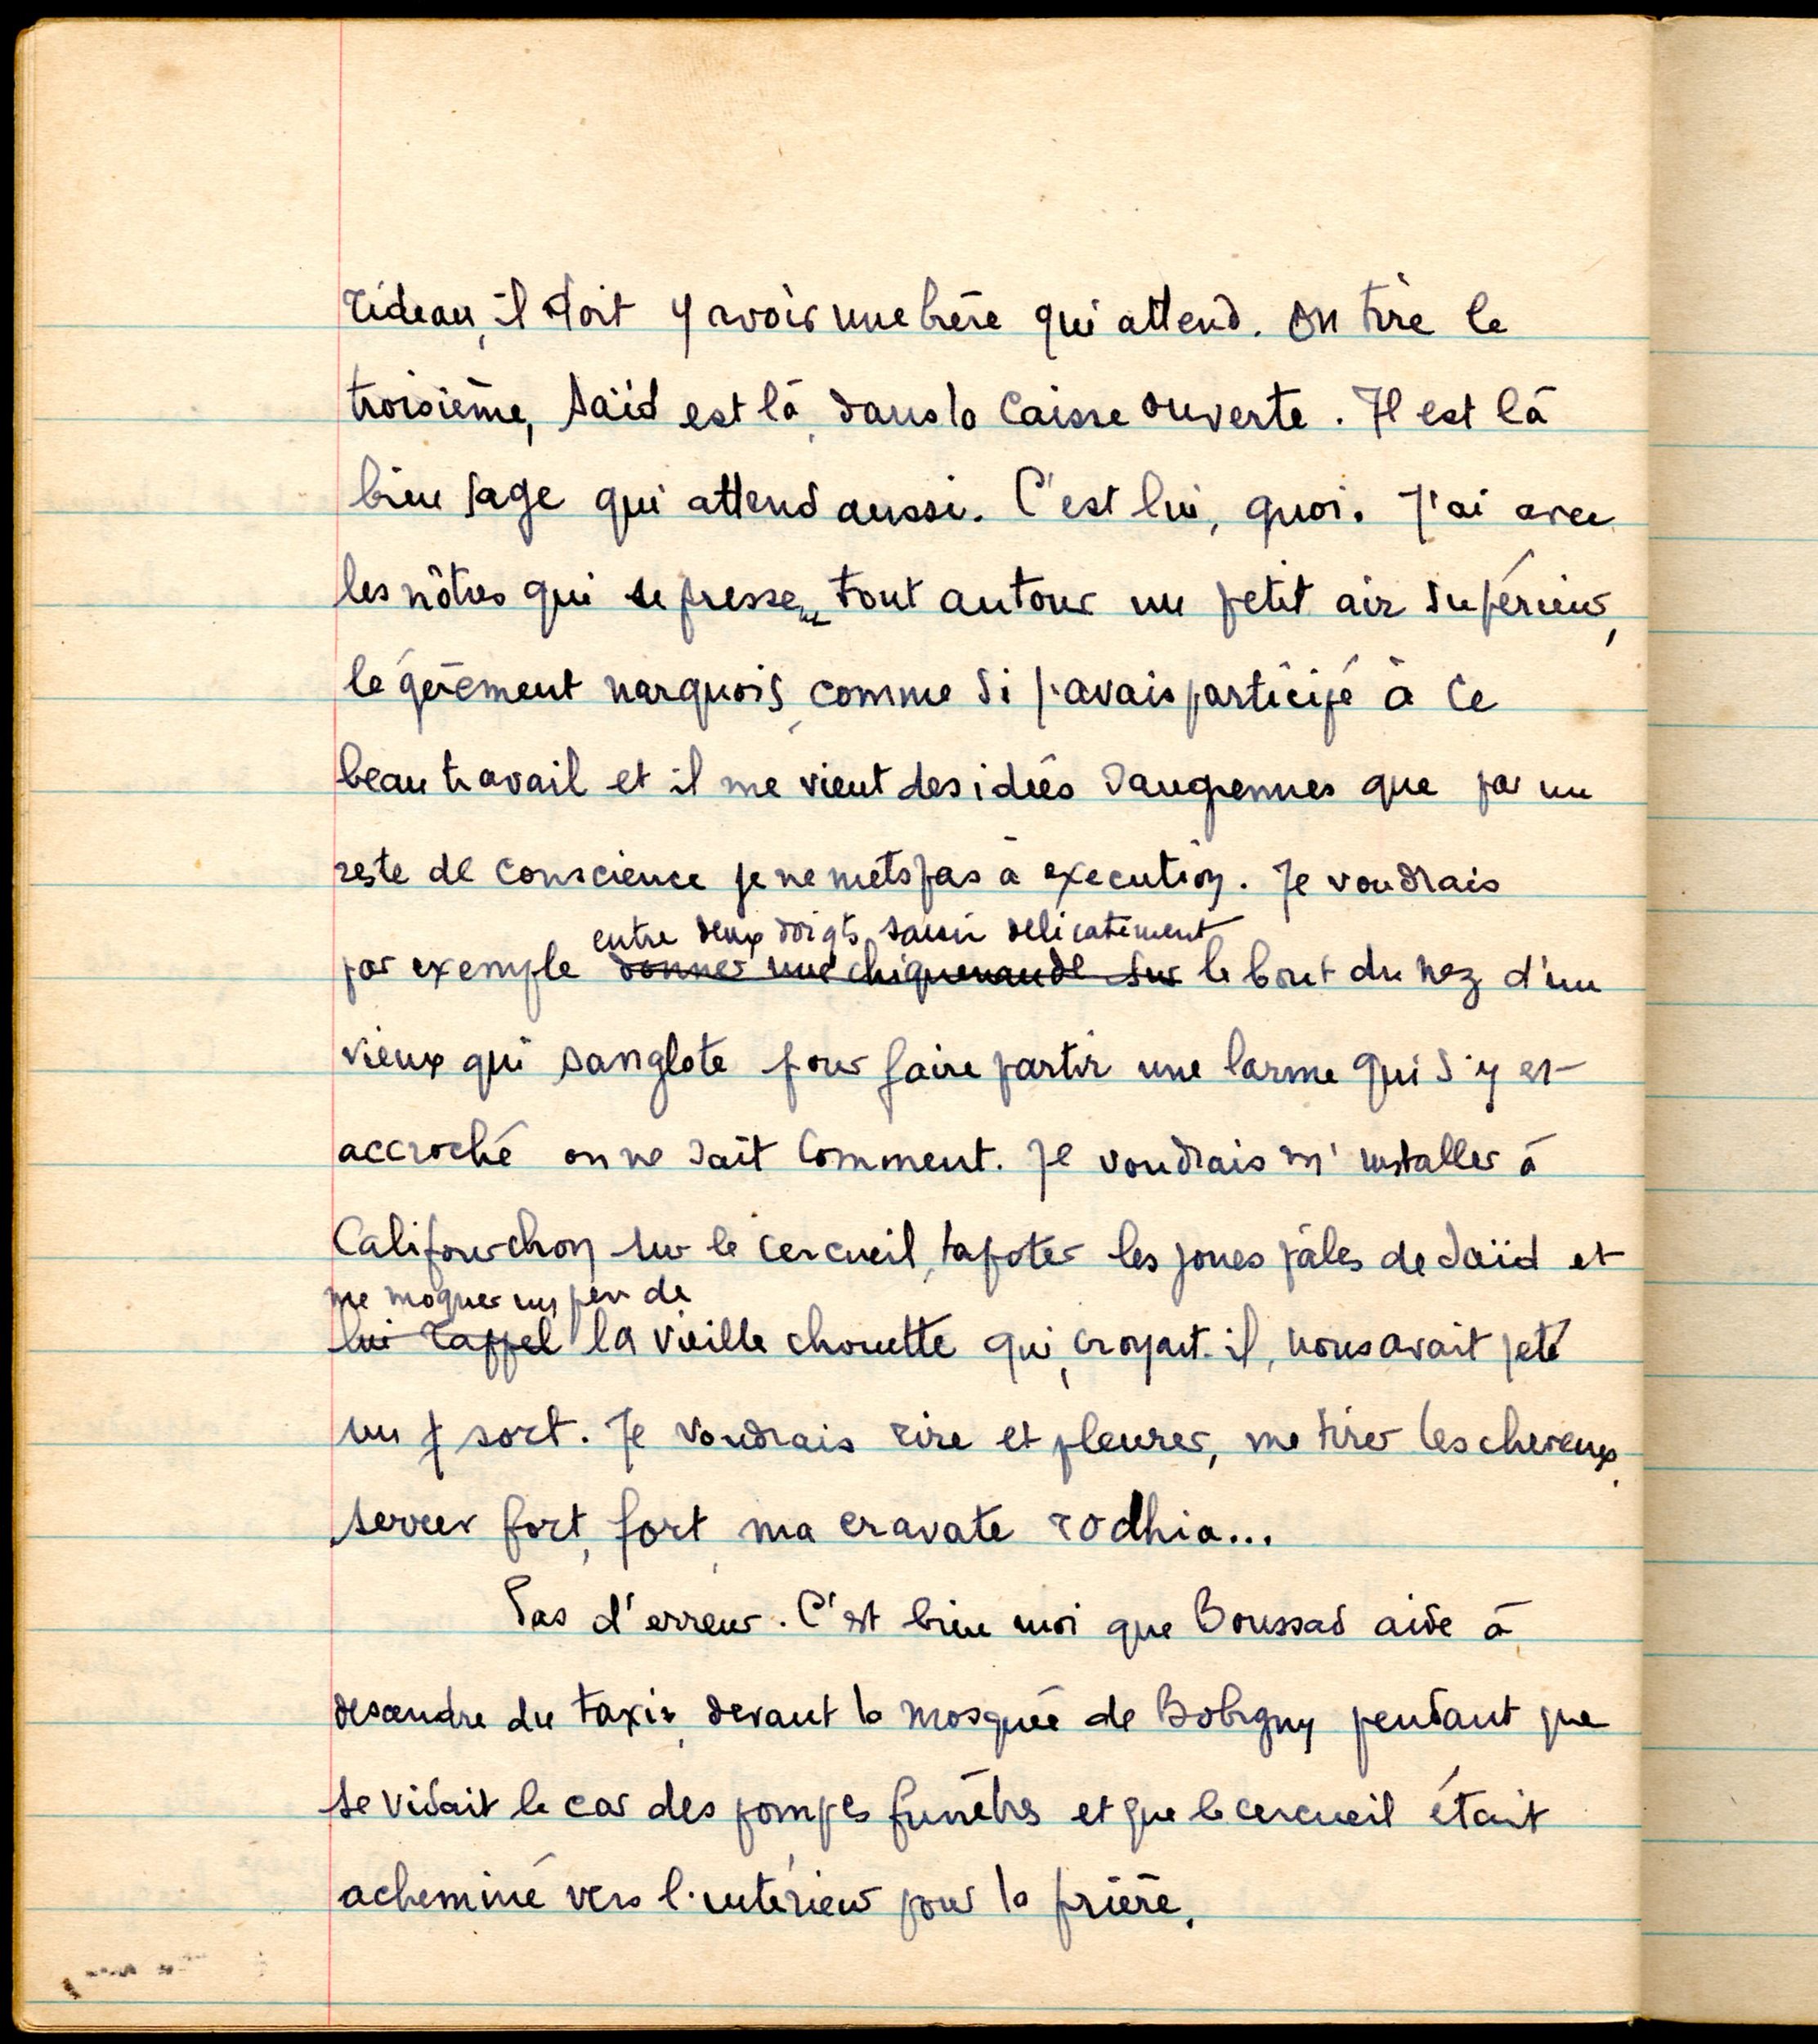 rideau, il doit y avoir une bière qui attend. On tire le
troisième, Saïd est là, dans la caisse ouverte. Il est là
bien sage qui attend aussi. C'est lui, quoi. J'ai avec
les nôtres qui se pressent tout autour un petit air supérieur,
légèrement narquois, comme si j'avais participé à ce
beau travail et il me vient des idées saugrenues que par un
reste de conscience je ne mets pas à execution. Je voudrais
entre deux doigts, saisir délicatement
par exemple donner une chiquenaude sur le bout du nez d'un
vieux qui sanglote pour faire partir une larme qui s'y est
accroché on ne sait comment. Je voudrais m'installer à
Califourchon sur le cercueil, tapoter les joues pâles de Saïd et
me moquer un peu de
lui rappel la vieille chouette qui, croyait-il, nous avait jeté
un sort. Je voudrais rire et pleurer, me tirer les cheveux,
serrer fort, fort, ma cravate rodhia...
Pas d'erreur. C'est bien moi que Boussad aide à
descendre du taxi, devant la mosquée de Bobigny pendant que
se vidait le car des pompes funèbres et que le cercueil était
acheminé vers l'intérieur pour la prière.